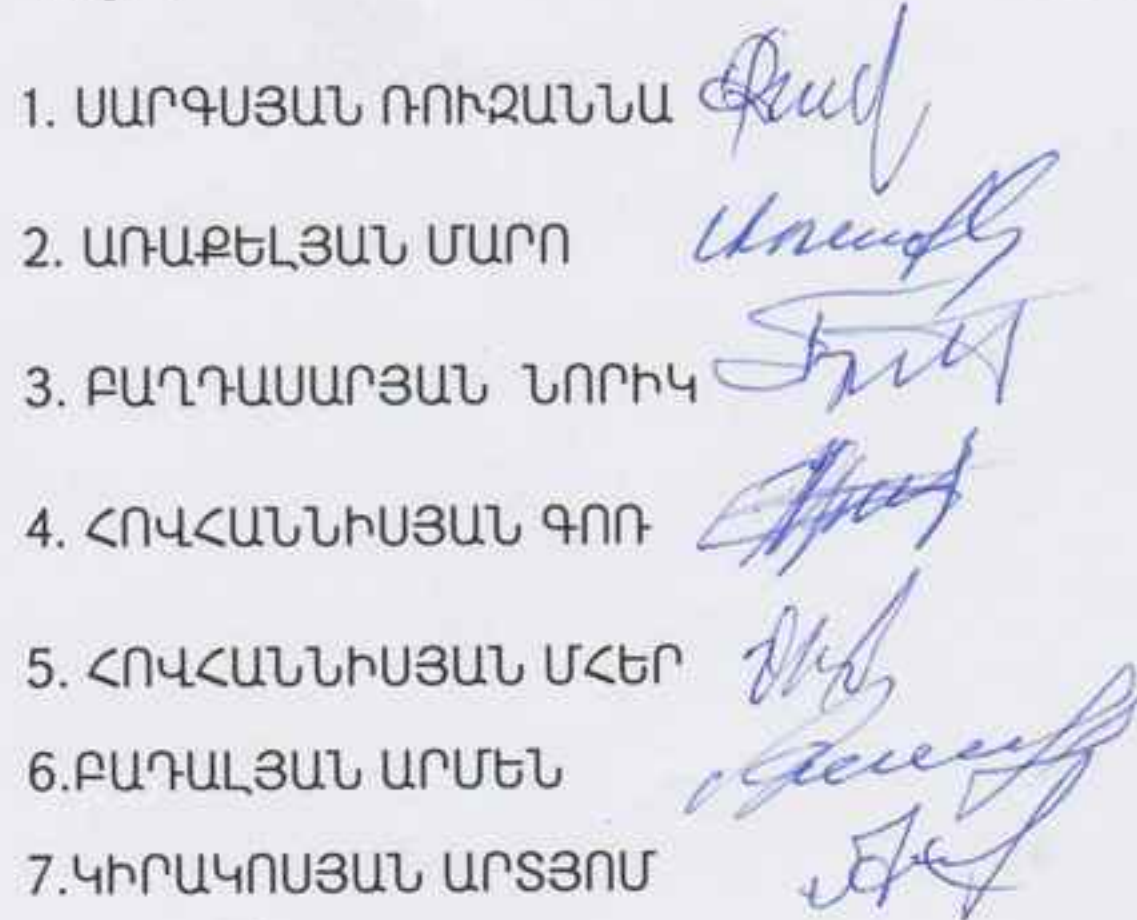 1. ՍԱՐԳՍՅԱՆ ՌՈՒԶԱՆՆԱ
2. ԱՌԱՔԵԼՅԱՆ ՄԱՐՈ
3. ԲԱՂԴԱՍԱՐՅԱՆ ՆՈՐԻԿ
4. ՀՈՎՀԱՆՆԻՍՅԱՆ ԳՈՌ
5. ՀՈՎՀԱՆՆԻՍՅԱՆ ՄՀԵՐ
6.ԲԱԴԱԼՅԱՆ ԱՐՄԵՆ
7.ԿԻՐԱԿՈՍՅԱՆ ԱՐՏՅՈՄ